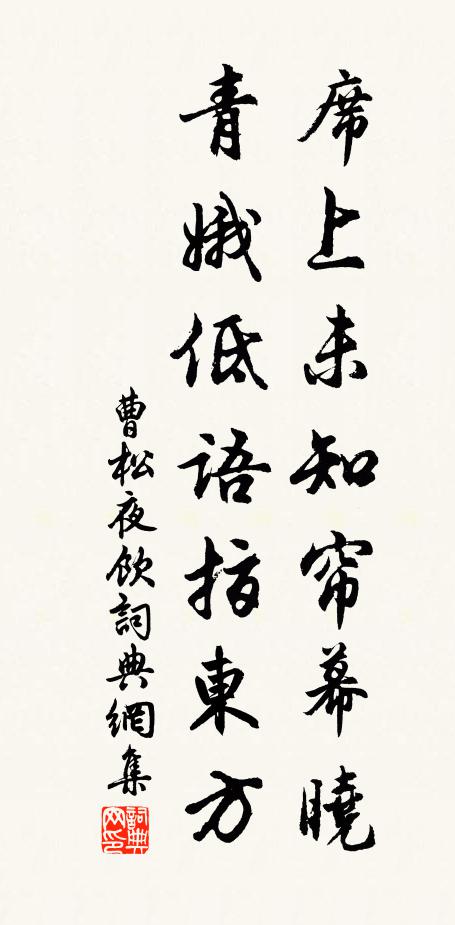 席上未知帘幕曉
青娥低語指東方
曹松夜飲詞典網集
詞典网印